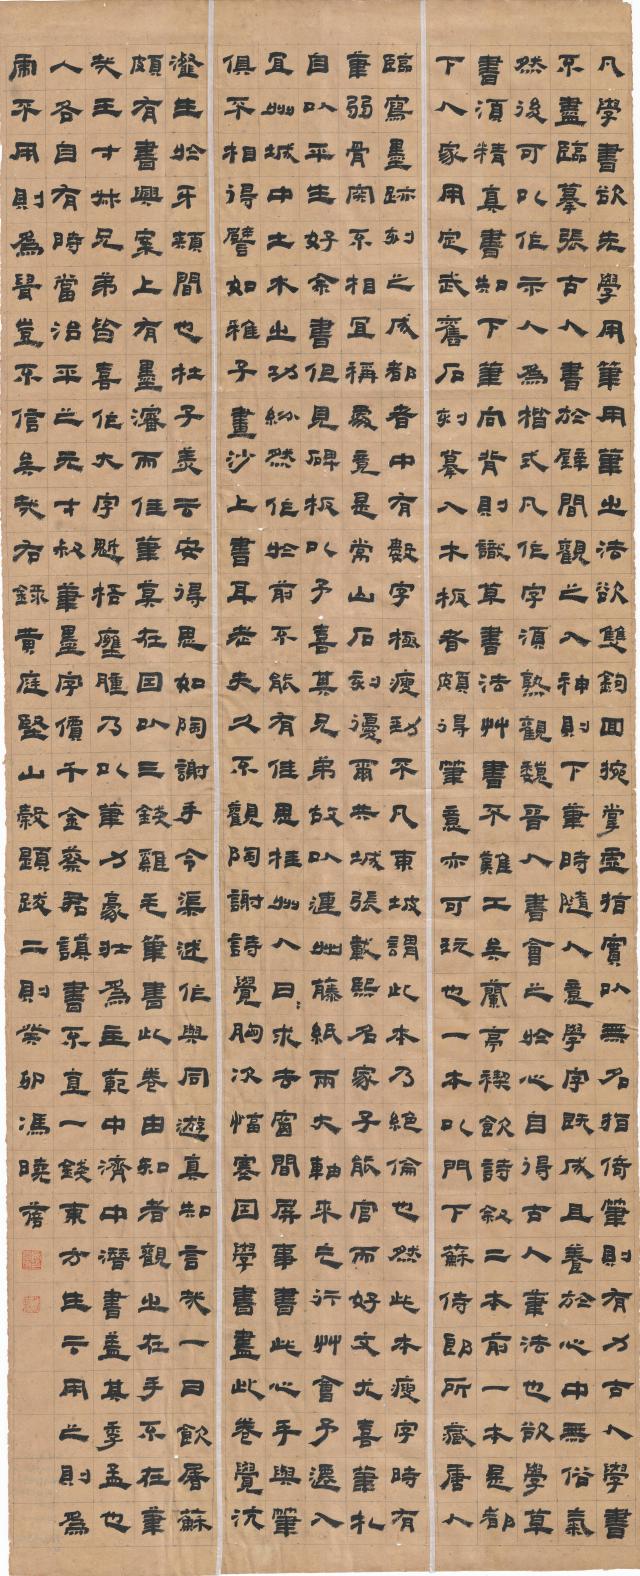 凡學書欲先學用筆用筆之法欲雙鉤回腕掌虛指實以無名指倚筆則有力古人學書
不盡臨摹張古人書於壁間觀之入神則下筆時隨人意學字既成且養於心中無俗氣
然後可以作示人為楷式凡作字須熟觀魏晉人書會之於心自得古人筆法也欲學草
書須精真書知下筆向背則識草書法艸書不難工矣蘭亭禊飲詩敘二本前一本是都
下人家用定武舊石刻摹入木板者頗得筆意亦可玩也一本以門下蘇侍郎所藏唐人
臨寫墨跡刻之成都者中有數字極瘦勁不凡東坡謂此本乃絕倫也然此本瘦字時有
筆弱骨肉不相宜稱處竟是常山石刻優爾共城張載熙名家子能官而好文尤喜筆札
自以平生好余書但見碑板以予喜其兄弟故以連州藤紙兩大軸來乞行艸會予遷入
宜州城中土木之功紛然作於前不能有佳思桂州人日求去窗間屏事書此心手與筆
俱不相得譬如稚子畫沙上書耳老夫久不觀陶謝詩覺胸次愊塞因學書盡此卷覺沆
瀣生於牙頰間也杜子美云安得思如陶謝手令渠述作與同遊真知言哉一日飲屠蘇
頗有書興案上有墨瀋而佳筆莫在因以三錢雞毛筆書此卷由知者觀之在手不在筆
哉王才叔兄弟皆喜作大字魁梧壅腫乃以筆力豪壯為主範中濟中潛書蓋其季孟也
人各自有時當治平之元才叔筆墨字價千金蔡君謨書不直一錢東方生云用之則為
虎不用則為鼠豈不信矣哉右錄黃庭堅山穀題跋二則癸卯馮曉